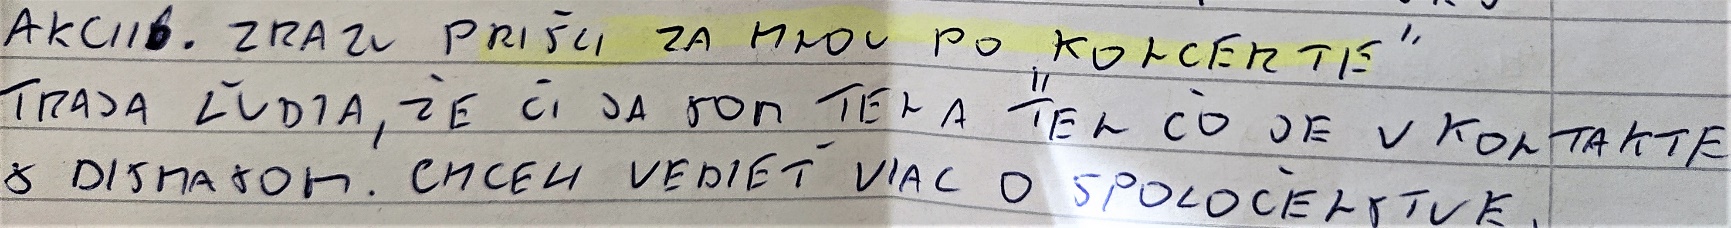 AKCIIB. ZRAZU PRIŠLI ZA MNOU PO „KONCERTE"
TRAJA ĽUDIA, ŽE ČI JA SOM TEN A TEN ČO JE V KONTAKTE
S DISMASOM. CHCELI VEDIEŤ VIAC O SPOLOČENSTVE.